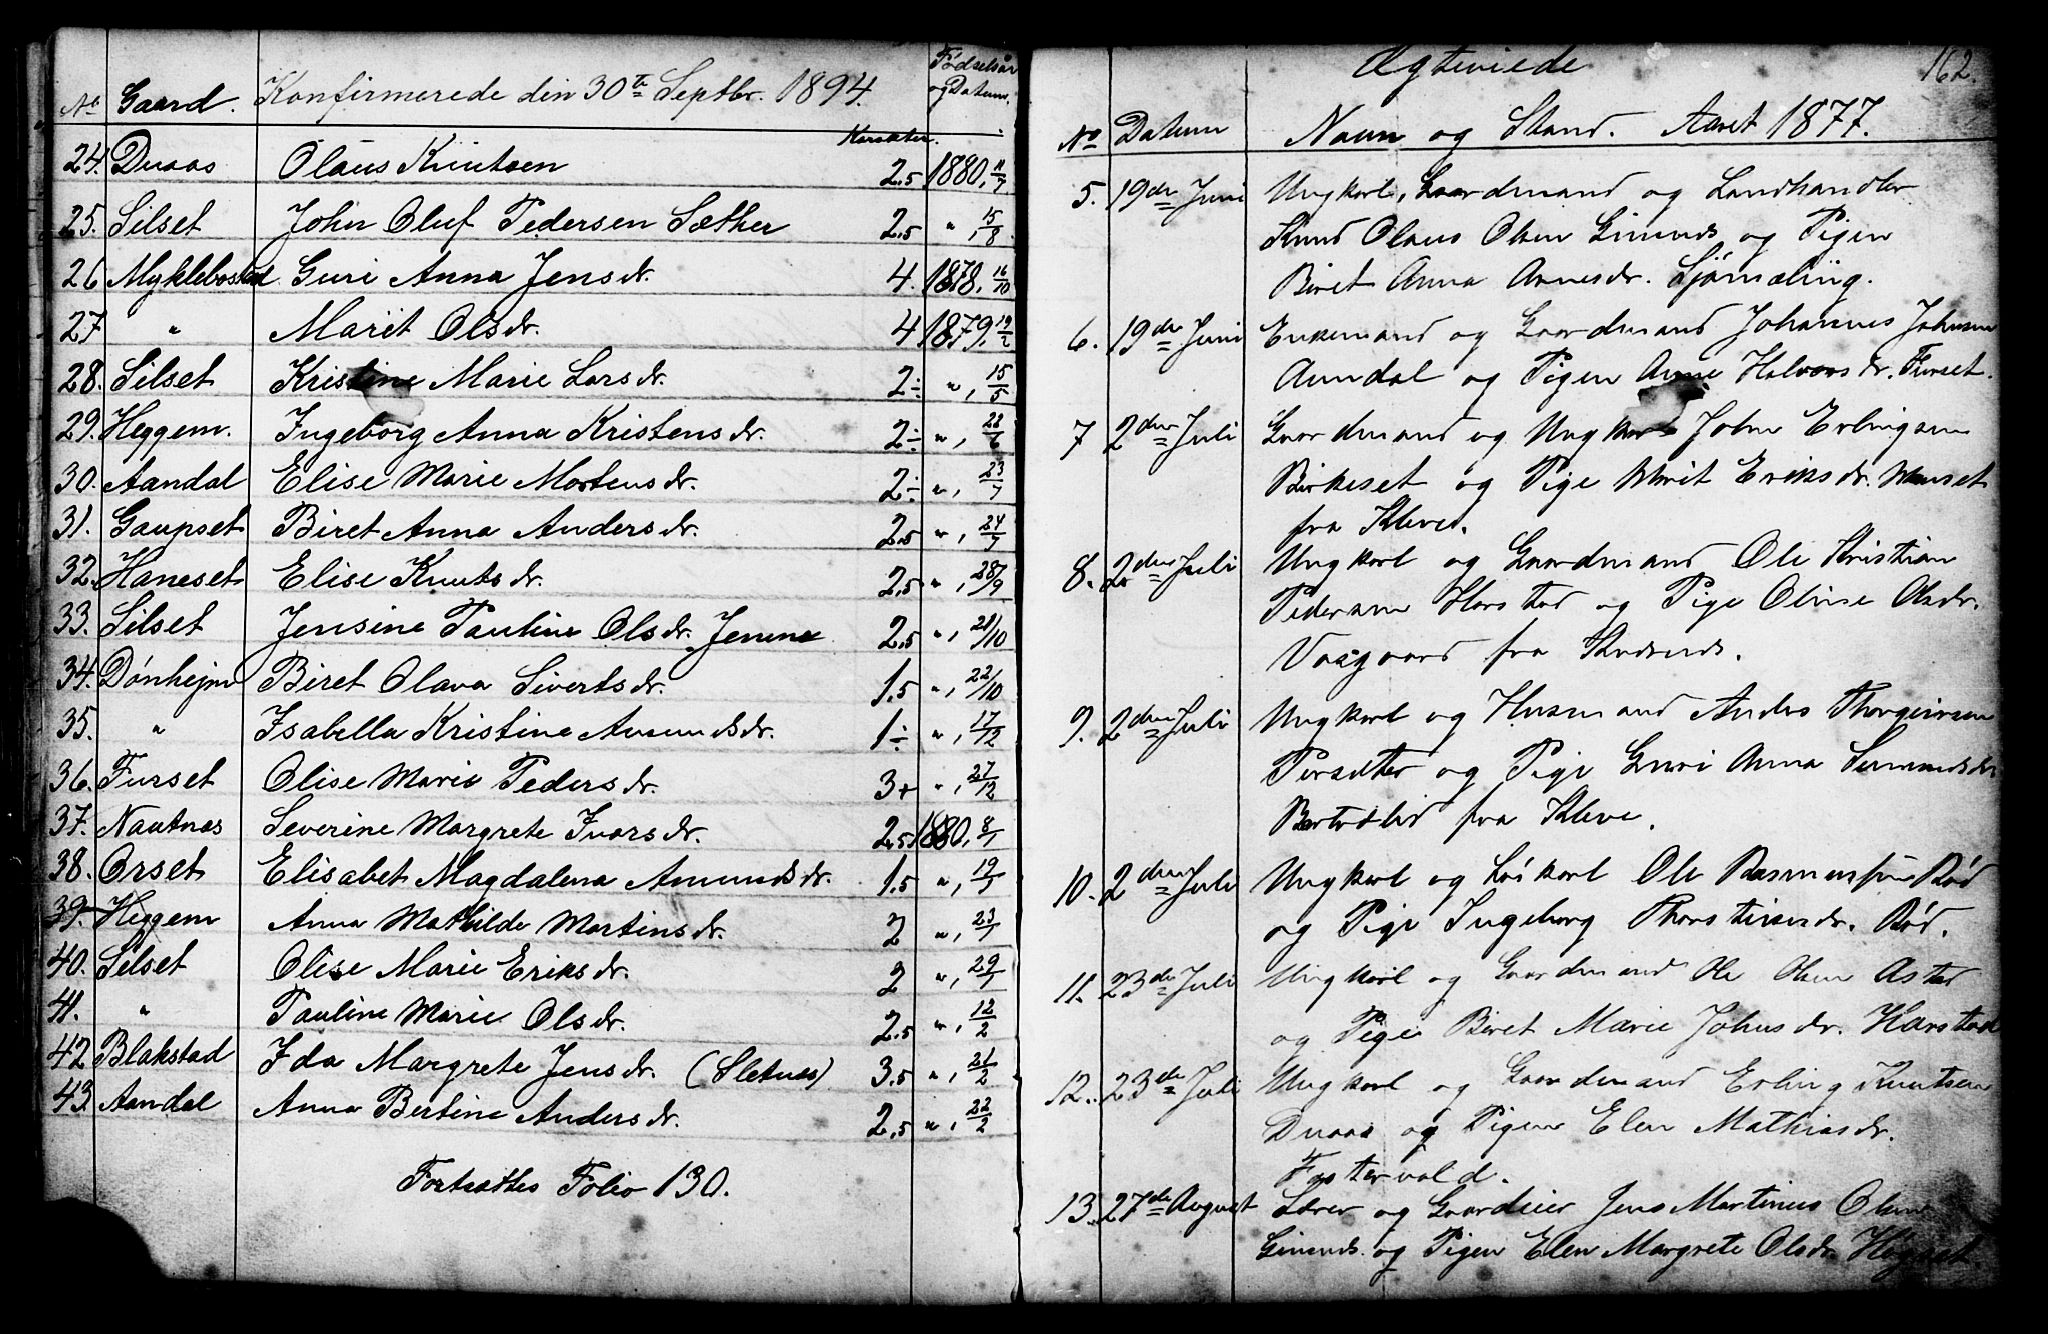 No Gaard. Konfirmerede den 30te Septbr. 1894. Karakter. Fødselsår og Datum.
24. Duaas Olaus Knutsen 2.5 1880, 11/7
25. Silset John Oluf Pedersen Sæther 2.5 " , 15/8
26 Myklebostad Guri Anna Jensdr. 4. 1878, 16/10
27 " Marit Olsdr. 4 1879, 19/2
28. Silset Kristine Marie Larsdr. 2÷ ", 15/5
29. Heggem. Ingeborg Anna Kristensdr. 2÷ ", 22/6
30. Aandal Elise Marie Mortensdr. 2÷ ", 23/7
31. Gaupset Biret Anna Andersdr. 2.5 ", 24/7
32. Haneset Elise Knutsdr. 2.5 ", 28/9
33. Silset Jensine Pauline Olsdr. 2.5 ", /10
34. Dønhejm Biret Olava Sivertsdr. 1.5 ", 22/10
35. " Isabella Kristine Amundsdr. 1÷ ", 17/12
36. Furset Olise Marie Pedersdr. 3+ ", 27/12
37. Nautnes Severine Margrete Ivarsdr. 2.5 1880, 8/1
38. Orset Elisabet Magdalena Amundsdr. 1.5 ", 19/1
39. Heggem Anna Mathilde Martinsdr. 2 ", 23/1
40. Silset Olise Marie Eriksdr. 2 ", 29/1
41. " Pauline Marie Olsdr. 2.5 ", 12/2
42 Blakstad Ida Margrete Jensdr. (Sletnes) 3.5 ", 21/2
43. Aandal Anna Bertine Andersdr. 2.5 ", 22/2
Fortsættes Folio 130.
Ægteviede 162.
No Datum Navn og Stand. Aaret 1877.
5. 19de Juni Ungkarl, Gaardmand og Landhandler
Knud Olaus Olsen Gimnes og Pigen
Biret Anna Arnesdr. Sjømæling.
6. 19de Juni Enkemand og Gaardmand Johannes Johnsen
Aandal og Pigen Anne Halvorsdr. Furset.
7 2den Juli Gaardmand og Ungkarl John Erlingsen
Birkeset og Pige Marit Eriksdr.
fra Kleve.
8. 2den Juli Ungkarl og Gaardmand Ole Kristian
Pedersen Harstad og Pige Oline Olsdr.
Vaagaard fra
9. 2den Juli Ungkarl og Husmand Anders
og Pige Guri Anna
fra Kleve.
10. 2den Juli Ungkarl og Løskarl Ole Rasmussen Rød
og Pige Ingeborg Thorsteinsdr. Rød.
11. 23de Juli Ungkarl og Gaardmand Ole Olsen Astad
og Pige Biret Marie Johnsdr. Harstad
12. 23de Juli Ungkarl og Gaardmand Erling Knutsen
Duaas og Pigen Elen Mathiasdr.
Fostervold.
13. 27de August Lærer og Gaardeier Jens Martinus Olsen
Gimnes og Pigen Elen Margrete Olsdr. Høgset.